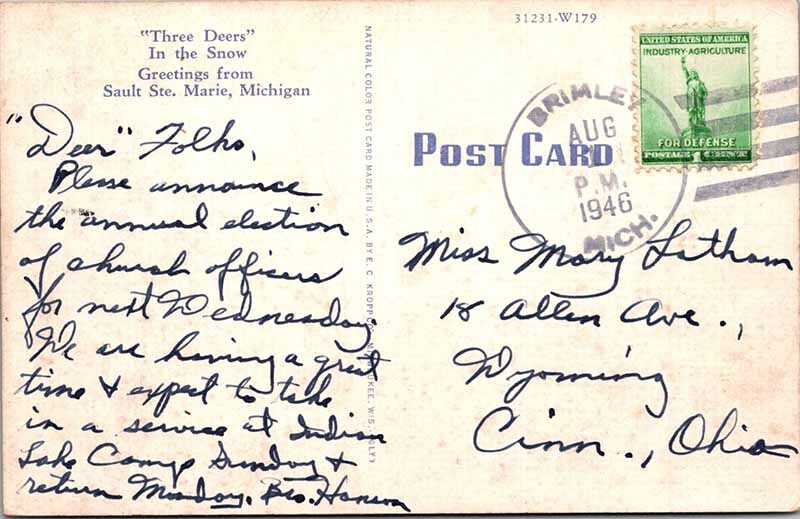 "Three Deers"
In the Snow
Greetings from
Sault Ste. Marie, Michigan
"Deer" Folks,
Please announce
the annual election
of church officers
for next Wednesday.
We are having a great
time & expect to take
in a service at Indian
Lake Camp Sunday &
return Monday. Bro. Hanson
NATURAL COLOR POST CARD MADE IN U.S.A. BY E. C. KROPP CO., MILWAUKEE, WIS.
31231-W179
POST CARD
BRIMLEY
AUG
P.M.
1946
MICH.
UNITED STATES OF AMERICA
INDUSTRY-AGRICULTURE
FOR DEFENSE
POSTAGE 1 CENT
Miss Mary Latham
18 Allen Ave.,
Wyoming
Cinn., Ohio